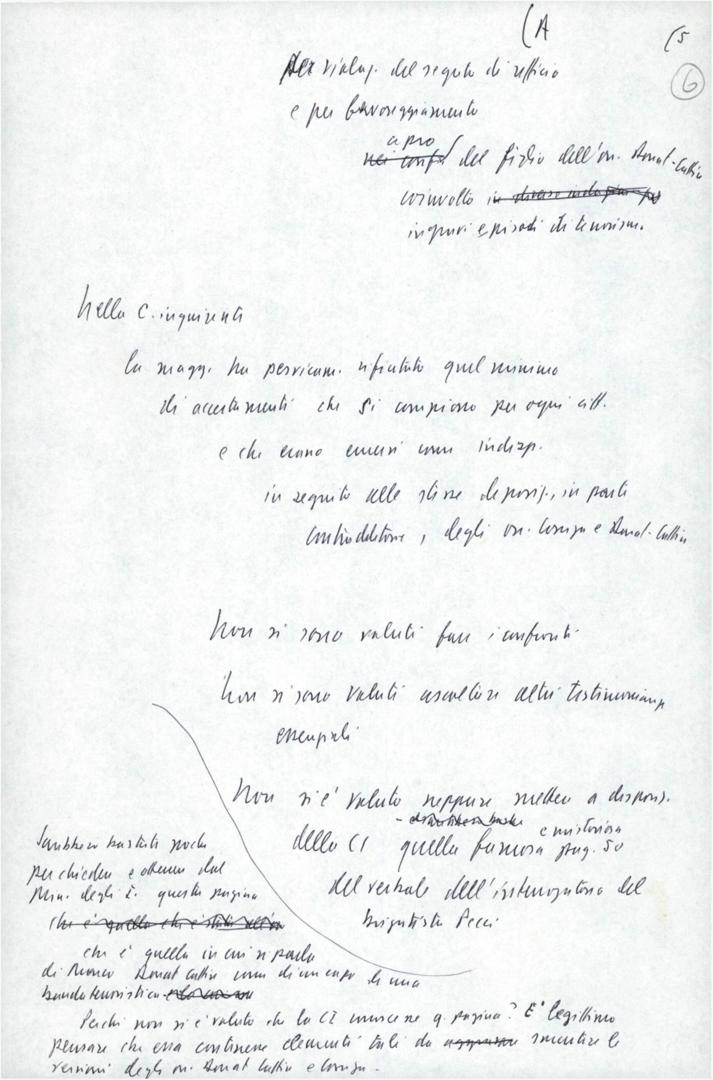 (A
(5
6
per violaz. del segreto di ufficio
e per favoreggiamento
a pro
nei conf del figlio dell'on. Donat-Cattin
coinvolto in diverse
in gravi episodi di terrorism.
Nella C. inquirenti
la magg. ha pervicam. rifiutato quel minimo
di accertamenti che si compiono per ogni citt.
e che erano emersi come indisp.
in seguito alle stesse deposiz., in parte
contraddittorie, degli on. Cossiga e Donat-Cattin
Non si sono voluti fare i confronti
Non si sono voluti ascoltare altri testimonianz
essenziali
Non si è voluto neppure mettere a disposiz.
e misteriosa
della CI quella famosa pag. 50
del verbale dell'interrogatorio del
brigatista Peci
Sarebbero bastate poche
per chiedere e ottenere dal
Min. degli I. questa pagina
che è quella che è stata
che è quella in cui si parla
di Marco Donat Cattin come di un capo di una
banda terroristica
Perché non si è voluto che la CI conoscesse q. pagina? E' legittimo
pensare che essa contiene elementi tali da smentire le
versioni degli on. Donat Cattin e Cossiga.